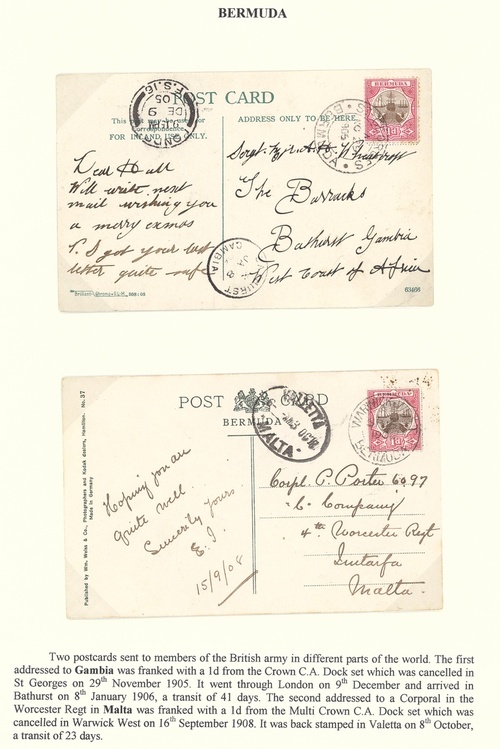 BERMUDA
POST CARD
This part may be used for
Correspondence.
FOR INLAND USE ONLY.
ADDRESS ONLY TO BE HERE.
BERMUDA
1d
LONDON
9.15PM
DE 9
05
F.S.16
Dear Hall
Will write next
mail wishing you
a merry exmas
P.S I got your last
letter quite safe
The Barracks
Bathurst Gambia
West Coast of Africa
BATHURST
GAMBIA
63466
POST CARD
BERMUDA
VALETTA
MALTA
BERMUDA
1d
WARWICK
BERMUDA
Published by Wm. Weiss & Co., Photographers and Kodak dealers, Hamilton. No. 37
Made in Germany
Hoping you are
quite well.
Sincerely yours
E. J.
15/9/08
Corpl. P. Porter 6097
"C" Company
4th Worcester Regt
Imtarfa
Malta.
Two postcards sent to members of the British army in different parts of the world. The first
addressed to Gambia was franked with a 1d from the Crown C.A. Dock set which was cancelled in
St Georges on 29th November 1905. It went through London on 9th December and arrived in
Bathurst on 8th January 1906, a transit of 41 days. The second addressed to a Corporal in the
Worcester Regt in Malta was franked with a 1d from the Multi Crown C.A. Dock set which was
cancelled in Warwick West on 16th September 1908. It was back stamped in Valetta on 8th October,
a transit of 23 days.